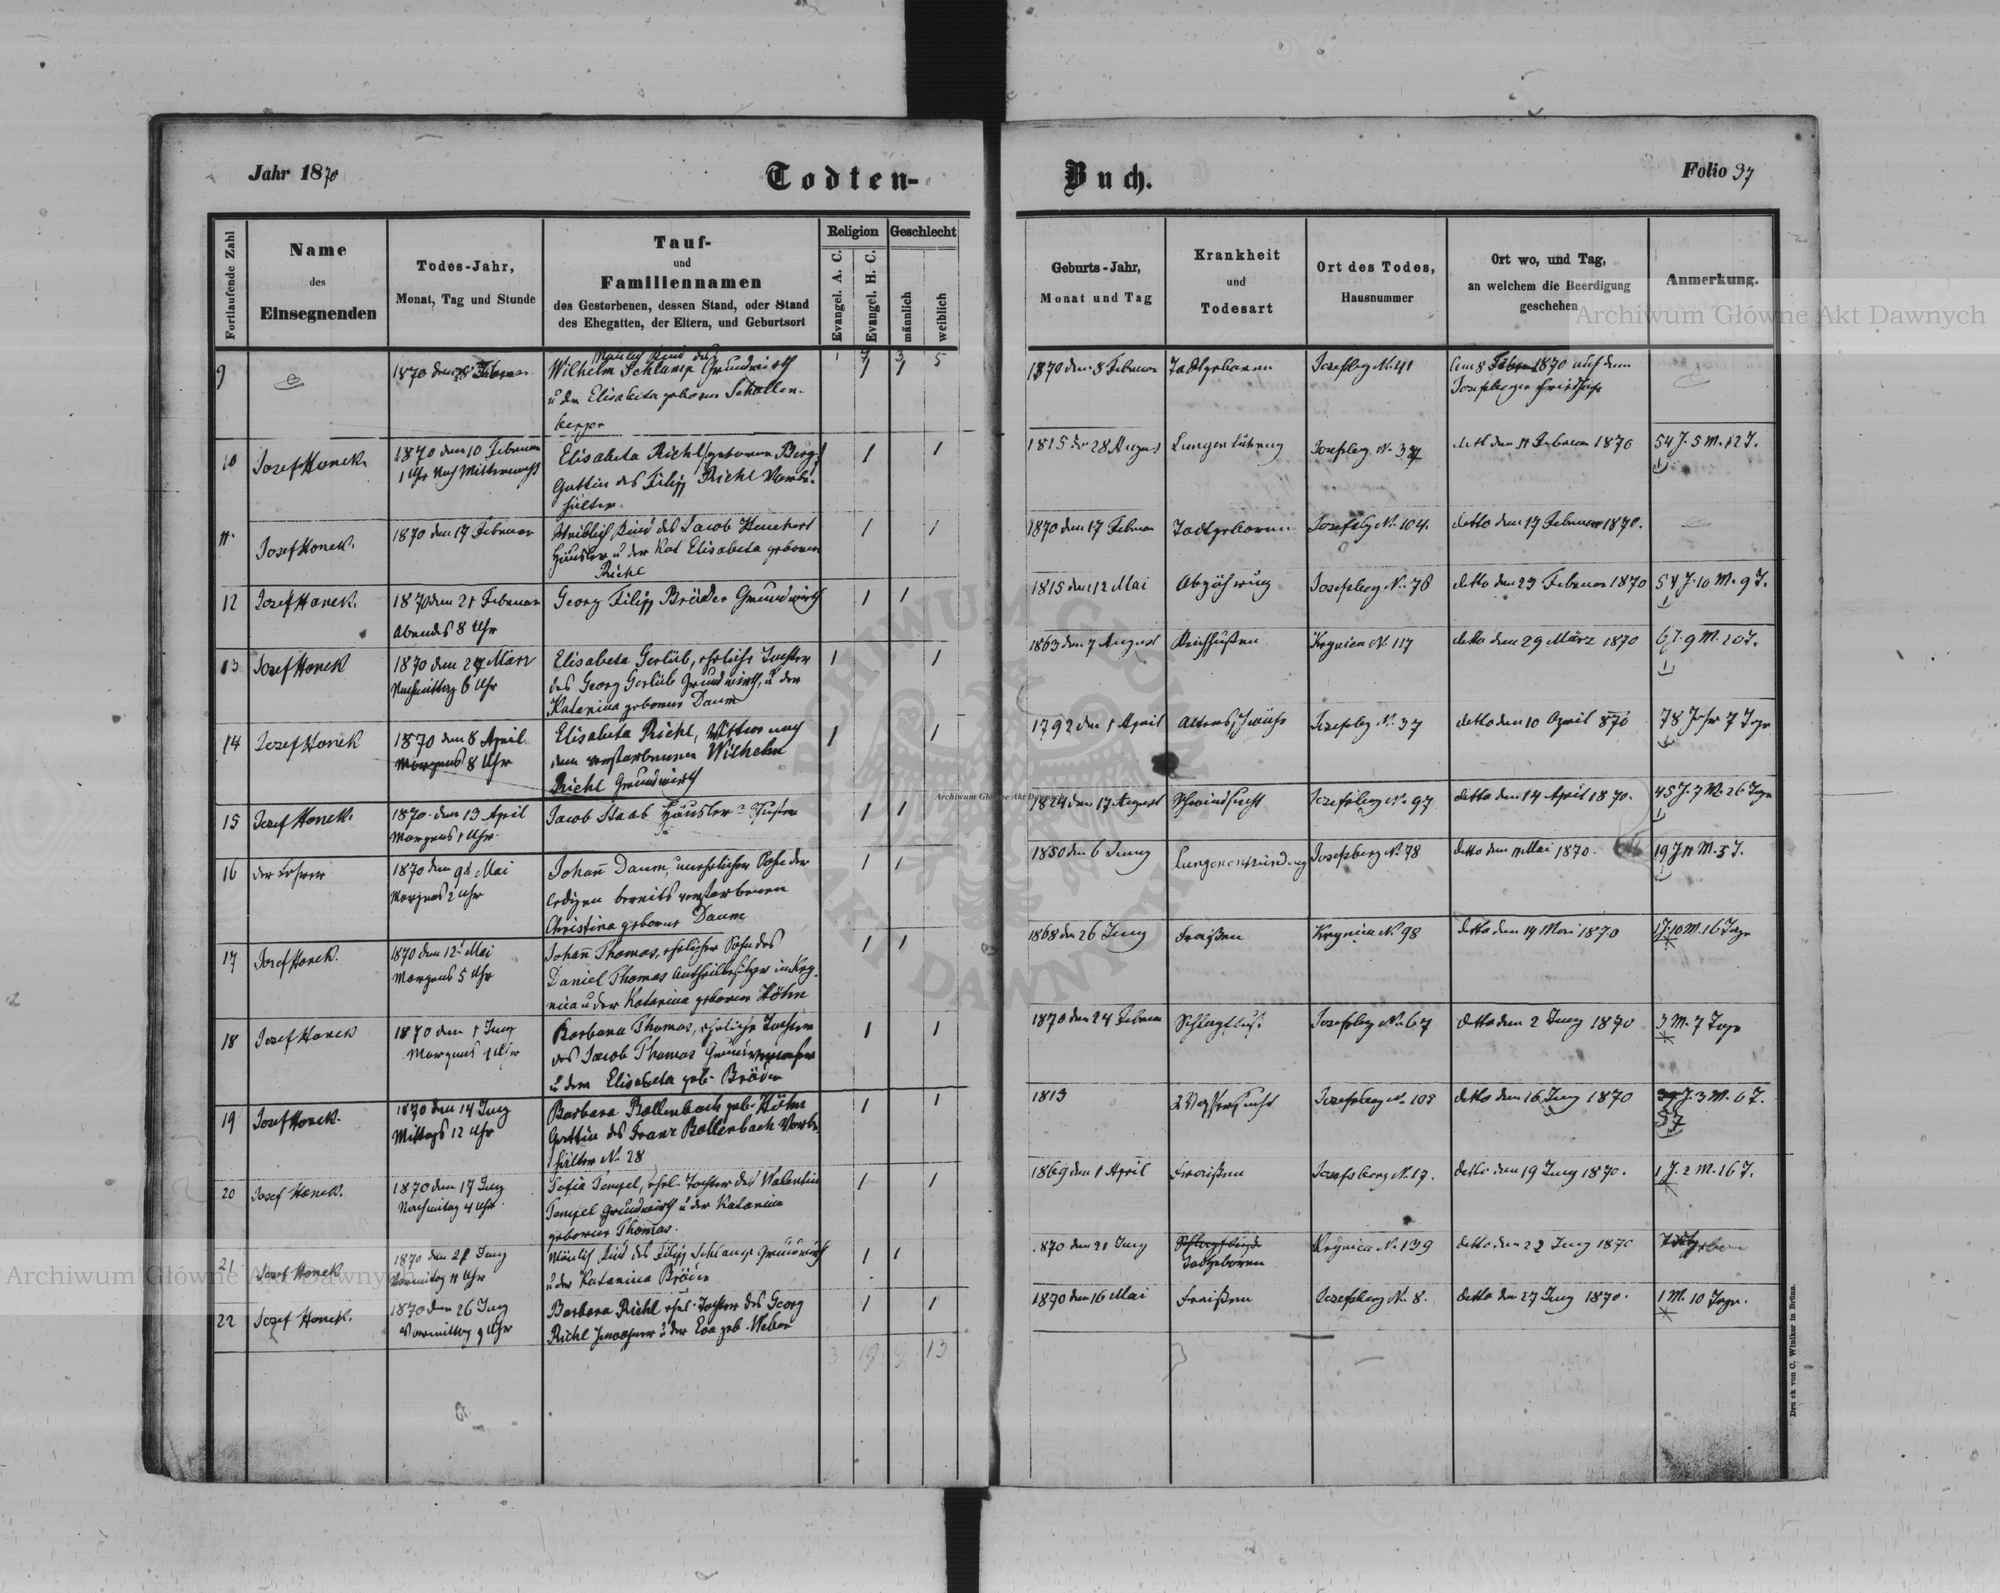 Jahr 1870
Todten-
Buch.
Folio 37
Fortlaufende Zahl
Name
des
Einsegnenden
Todes-Jahr,
Monat, Tag und Stunde
Tauf-
und
Familiennamen
des Gestorbenen, dessen Stand, oder Stand
des Ehegatten, der Eltern, und Geburtsort
Religion
Evangel. A. C.
Evangel. H. C.
Geschlecht
männlich
weiblich
Geburts-Jahr,
Monat und Tag
Krankheit
und
Todesart
Ort des Todes,
Hausnummer
Ort wo, und Tag,
an welchem die Beerdigung
geschehen
Anmerkung.
9
1870 den 8 Februar
Wilhelm Schlamp Grundwirth
u der Elisabeta geboren Schollen-
berger
1 7 3 5
1870 den 8 Februar
Todtgeboren
Josefsberg No 41
Am 8 Februar 1870 auf dem
Josefsberger Friedhofe
10
Josef Honek
1870 den 10 Februar
1 Uhr Nach Mitternacht
Elisabeta Richl geborene Berg
Gattin des Filipp Richl Vorbe-
hälter
1 1
1815 den 28 August
Josefsberg No 37
detto den 11 Februar 1870
54 J. 5 M. 12 T.
11.
Josef Honek.
1870 den 17 Februar
Weiblich Kind des Jacob
Häusler u der Elisabeta geboren
Richl
1 1
1870 den 17 Februar
Todtgeboren
Josefsbg No 104.
detto den 17 Februar 1870.
12
Josef Honek.
1870 den 21 Februar
Abends 8 Uhr
Georg Filipp Bräder Grundwirth
1 1
1815 den 12 Mai
Abzährung
Josefsberg No 76
detto den 23 Februar 1870
54 J. 10 M. 9 T.
13
Josef Honek
1870 den 27 März
Nachmittag 6 Uhr
Elisabeta Gerlüb, eheliche Tochter
des Georg Gerlüb Grundwirth, u der
Katarina geborene Daum
1 1
1863 den 7 August
Keichhusten
Krynica No 117
detto den 29 März 1870
6 J. 9 M. 20 T.
14
Josef Honek
1870 den 8 April
Morgens 8 Uhr
Elisabeta Richl, Wittwe nach
dem verstorbenen Wilhelm
Richl Grundwirth
1 1
1792 den 1 April
Altersschwäche
Josefsbg No 37
detto den 10 April 870
78 Jahr 7 Tage
15
Josef Honek.
1870 den 13 April
Morgens 1 Uhr
Jacob Staab Häusler
1 1
1824 den 17 August
Schwindsucht
Josefsberg No 97
detto den 14 April 1870.
45 J. 7 M. 26 Tage
16
der Lehrer
1870 den 9t Mai
Morgens 2 Uhr
Johann Daum, unehelicher Sohn der
ledigen bereits verstorbenen
Christina geborene Daum
1 1
1850 den 6 Juny
Lungenentzündung
Josefsberg No 78
detto den 11 Mai 1870.
19 J 11 M. 3 T.
17
Josef Honek.
1870 den 12t Mai
Morgens 5 Uhr
Johann Thomas, ehelicher Sohn des
Daniel Thomas Antheilbesitzer in Kry-
nica u der Katarina geboren Höhn
1 1
1868 den 26 Juny
Fraißen
Krynica No 98
detto den 14 Mai 1870
1 J. 10 M. 16 Tage
18
Josef Honek
1870 den 1 Juny
Morgens 1 Uhr
Barbara Thomas, eheliche Tochter
des Jacob Thomas
u der Elisabeta geb. Bräder
1 1
1870 den 24 Februar
Schlagfluß
Josefsberg No 67
detto den 2 Juny 1870
3 M. 7 Tage
19
Josef Honek.
1870 den 14 Juny
Mittags 12 Uhr
Barbara Bollenbach geb. Höhn
Gattin des Franz Bollenbach Vorbe-
hälter No 28
1 1
1813
Wassersucht
Josefsberg No 108
detto den 16 Juny 1870
57 J. 3 M. 6 T.
20
Josef Honek.
1870 den 17 Juny
Nachmittag 4 Uhr
Sofia Tempel, ehel. Tochter des Valentin
Tempel Grundwirth u der Katarina
geborene Thomas.
1 1
1869 den 1 April
Fraißen
Josefsberg No 17.
detto den 19 Juny 1870.
1 J. 2 M. 16 T.
21
Josef Honek
1870 den 21 Juny
Vormittag 11 Uhr
Männlich Kind des Filipp Schlamp Grundwirth
u der Katarina Bräder
1 1
1870 den 21 Juny
Schlagfluß
Todtgeboren
Krynica No 139
detto den 22 Juny 1870
Todtgeboren
22
Josef Honek.
1870 den 26 Juny
Vormittag 9 Uhr
Barbara Richl ehel. Tochter des Georg
Richl Inwohner u der Eva geb. Weber
1 1
1870 den 16 Mai
Fraißen
Josefsberg No 8.
detto den 27 Juny 1870.
1 M. 10 Tage.
3 19 9 13
Druck von C. Winiker in Brünn.
Archiwum Główne Akt Dawnych
Archiwum Główne Akt Dawnych
Archiwum Główne Akt Dawnych
ARCHIWUM GŁÓWNE AKT DAWNYCH